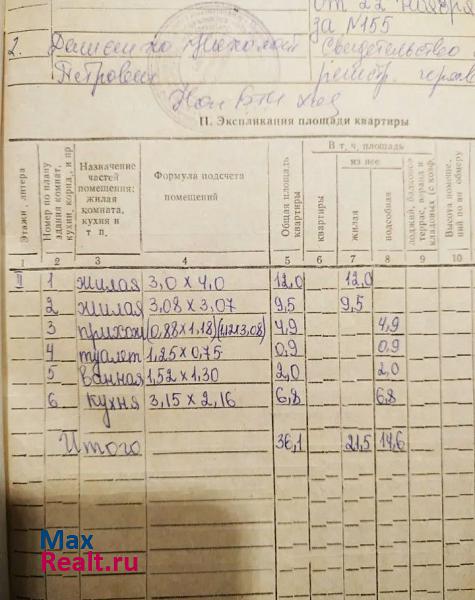 от 22 ноября
за №155
2. Свидетельство
Петрович регистр.
II. Экспликация площади квартиры
Этажи, литера
Номер по плану здания комнаты, кухни, корид., и пр.
Назначение частей помещения: жилая комната, кухня и т п.
Формула подсчета помещений
Общая площадь квартиры
В т. ч. площадь
квартиры
из нее
жилая
подсобная
лоджий, балконов террас, веранд и кладовых (с коэф.
Высота помещ.
1 2 3 4 5 6 7 8 9 10
II 1 жилая 3,0 х 4,0 12,0 12,0
2 жилая 3,08 х 3,07 9,5 9,5
3 прихож (0,88х1,18)(1,12х3,08) 4,9 4,9
4 туалет 1,25 х 0,75 0,9 0,9
5 ванная 1,52 х 1,30 2,0 2,0
6 кухня 3,15 х 2,16 6,8 6,8
Итого 36,1 21,5 14,6
Max
Realt.ru